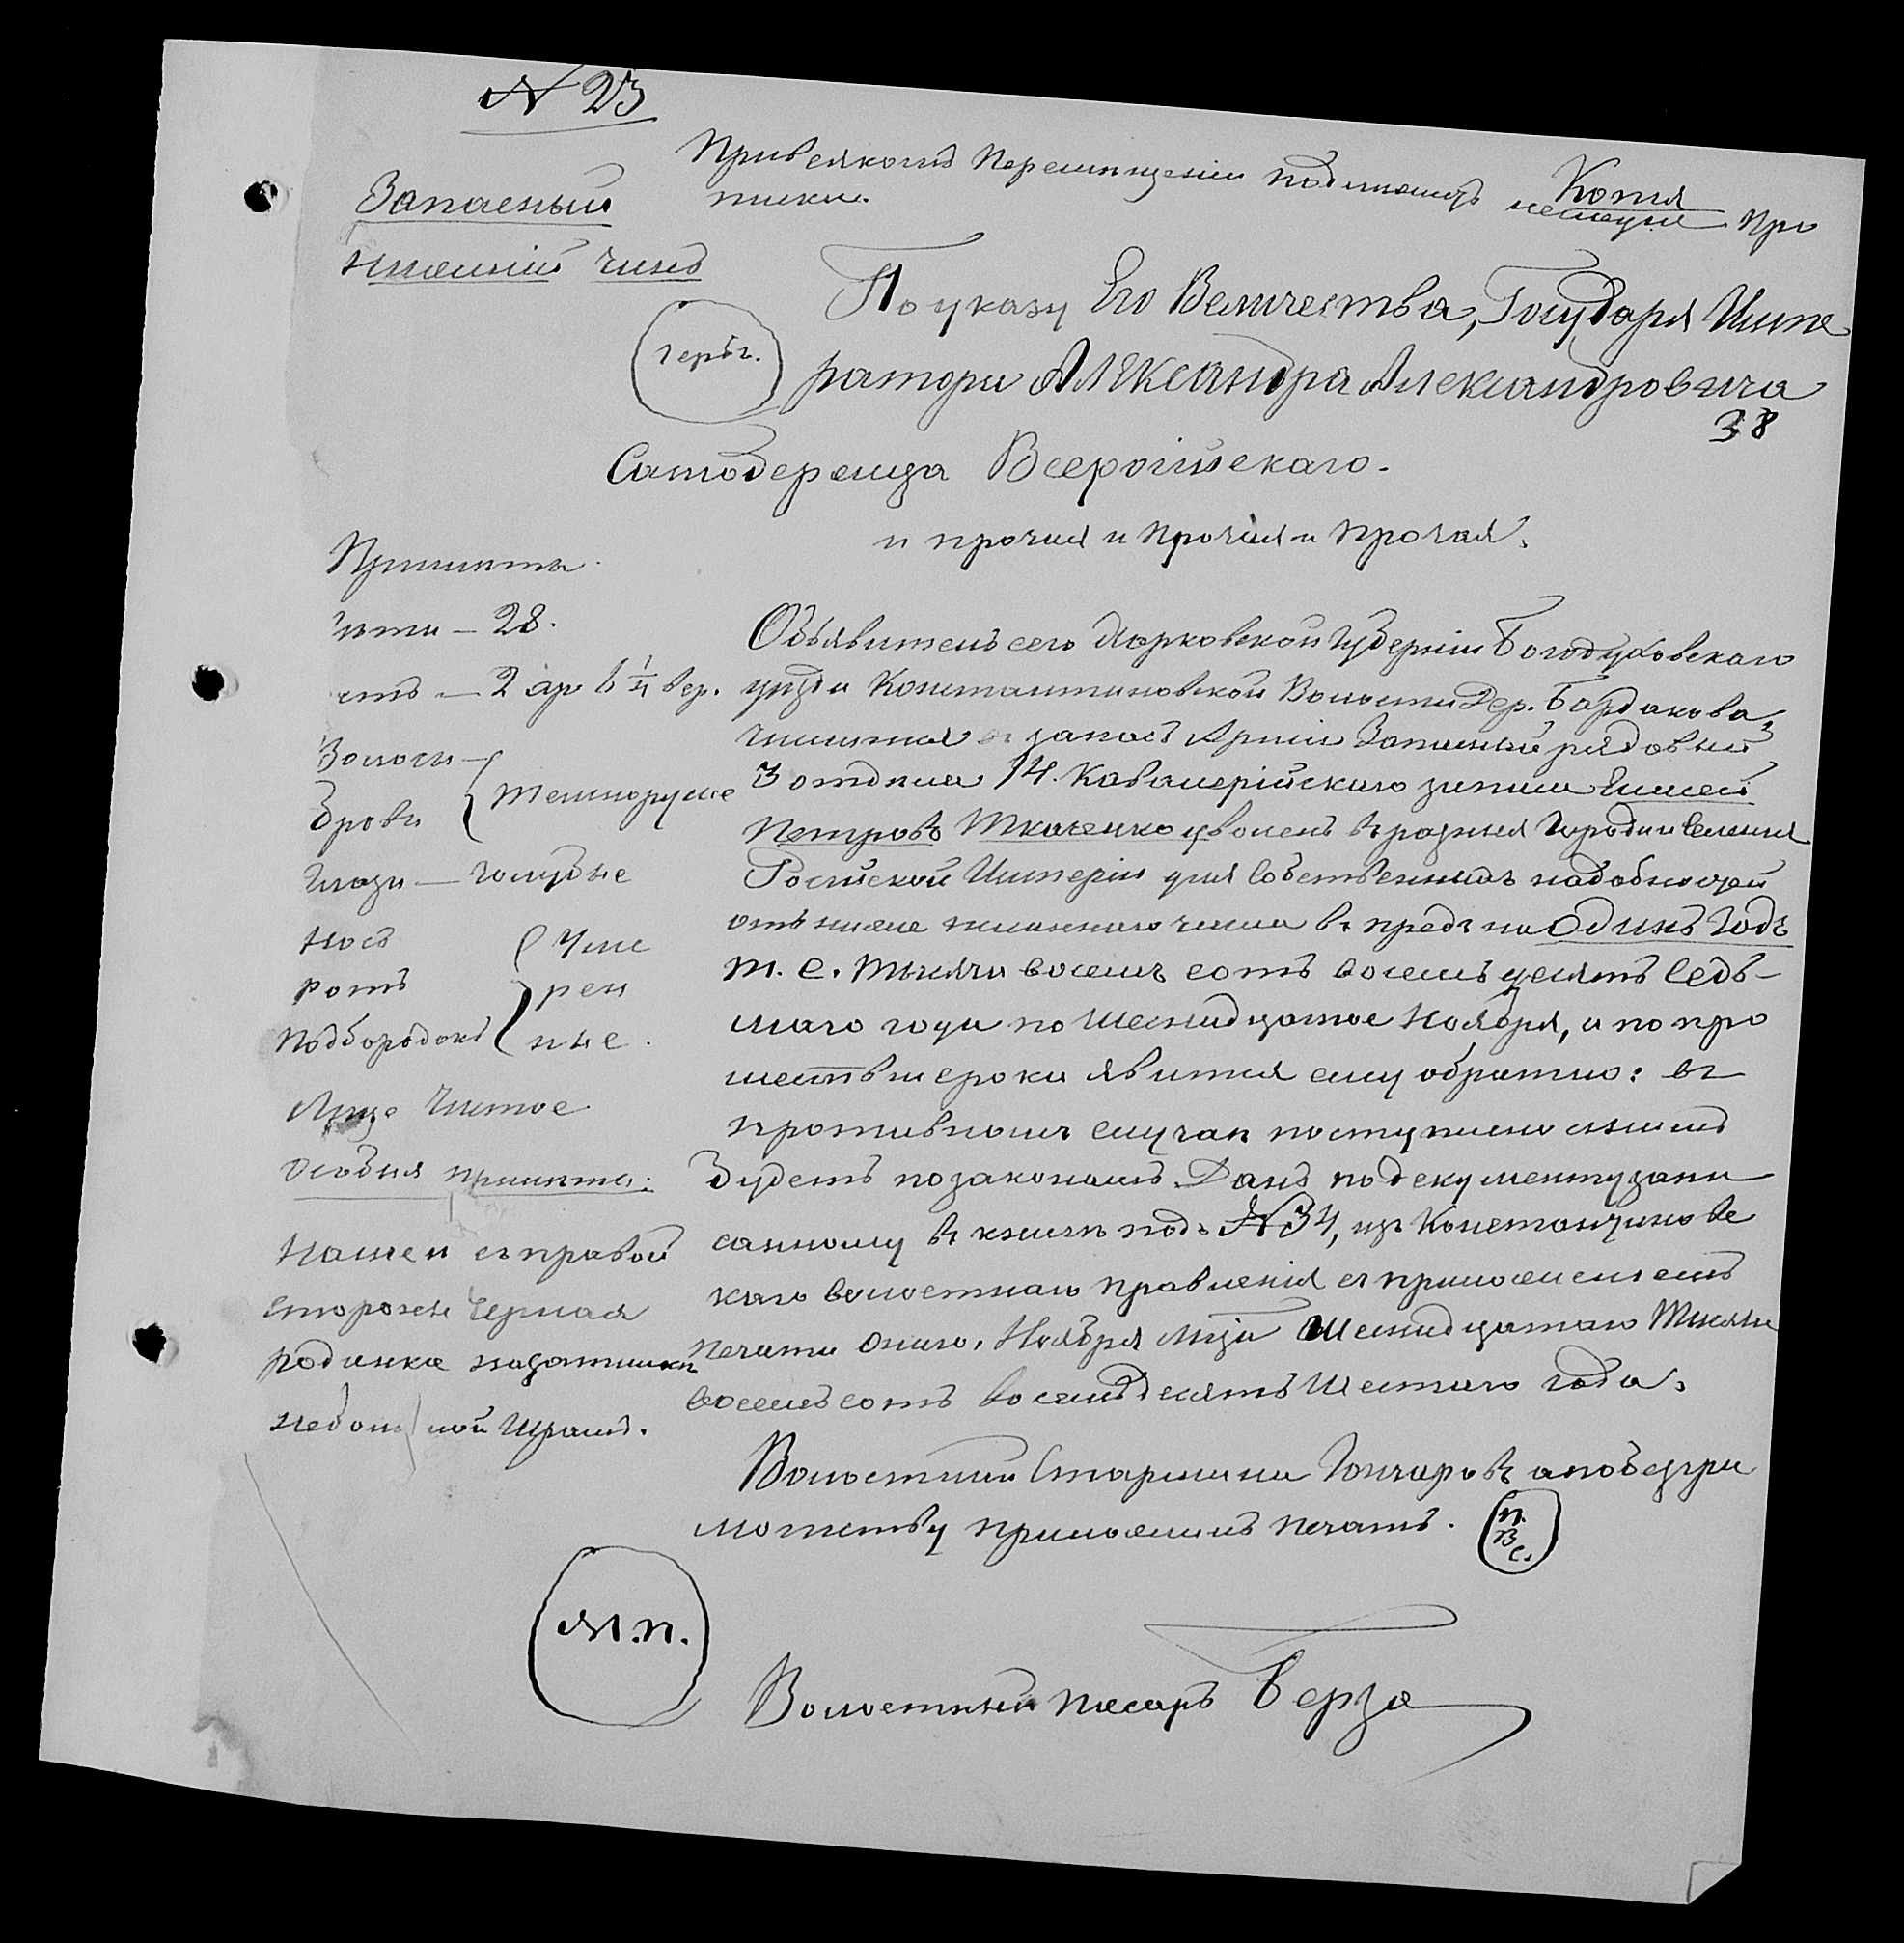 № 23
Привсякомъ перемищении подлежитъ
Копия
неявуи про
писки.
Запасный
нижний чинъ
По указу Его Величества, Государя Импе
гербъ.
ратора Александра Александровича
38
Самодержца Всеросийскаго.
и прочая и прочая и прочая.
Примиты
лета – 28.
остъ – 2 ар 6 1/4 вер.
Волосы –
брови
темнорусые
глаза – голубые
носъ
ротъ
подбородокъ
уме
рен
ные.
Лице чистое
особыя примиты:
На шеи съ правой
стороны черная
родинка назатылки
небольшой шрамъ.
Объявитель сего Харковской губернии Богодуховскаго
уизда Константиновской волости дер. Бардакова,
числится в запасъ армии Запасный рядовый
3 отдила 14. Кавалерийскаго запаса Елисей
Петровъ Ткаченко уволенъ въ разныя города и селения
Росийской Империи для собственныхъ надобностей
отъ ниже писаннаго числа въ предъ на одинъ годъ
т. е. тысячи восемъ сотъ восемъдесятъ седь–
маго года по шестнадцатое Ноября, а по про
шествии срока явится ему обратно: въ
противномъ случаи поступлено снимъ
будетъ по законамъ. Данъ по документу запи
санному въ книги подъ № 34, изъ Константиновс
каго волостнаго правления съ приложениемъ
печати онаго, Ноября мця шестнадцатаго Тысячи
восемъ сотъ восемдесятъ шестаго года.
Волостный Старшина Гончаровъ а по безгра
мотству приложилъ печать.
П.
В.
С.
М.П.
Волостный писаръ Берза